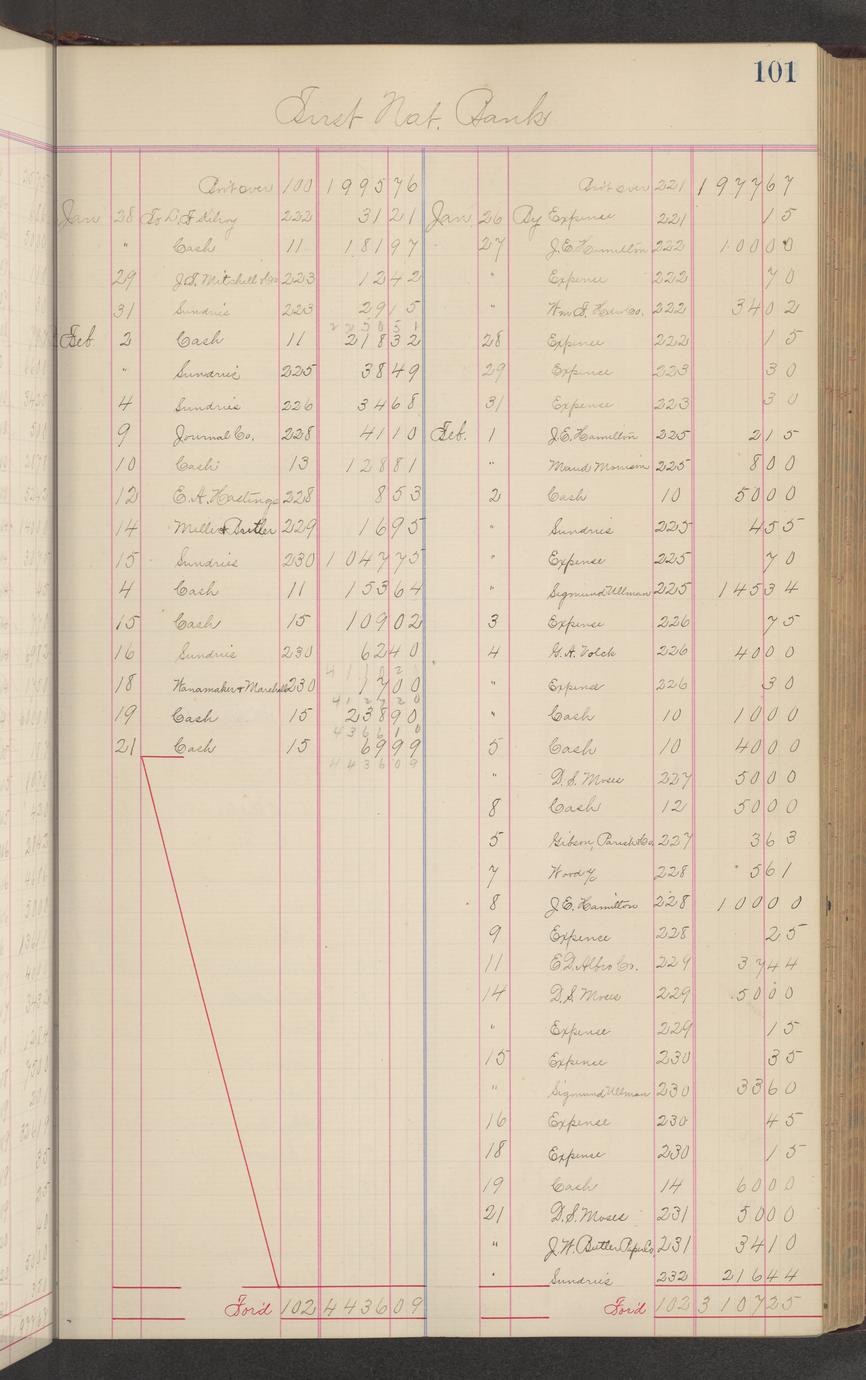 101
First Nat. Bank
Bro't over 100 1995 76
Jan 28 To L. F. Kilroy 222 31 21
" Cash 11 181 97
29 J. S. Mitchell & Co 223 12 42
31 Sundries 223 29 15
2 2 5 0 5 1
Feb. 2 Cash 11 218 32
" Sundries 225 38 49
4 Sundries 226 34 68
9 Journal Co. 228 41 10
10 Cash 13 128 81
12 E. A. Hastings 228 8 53
14 Miller & Butler 229 16 95
15 Sundries 230 1047 75
4 Cash 11 153 64
15 Cash 15 109 02
16 Sundries 230 62 40
18 Wanamaker & Marshall 230 17 00
4 1 2 7 2 0
19 Cash 15 238 90
4 3 6 6 1 0
21 Cash 15 69 99
4 4 3 6 0 9
For'd 102 4436 09
Bro't over 221 1977 67
Jan 26 By Expense 221 15
27 J. E. Hamilton 222 100 00
" Expense 222 70
" Wm. F. Co. 222 34 02
28 Expense 222 15
29 Expense 223 30
31 Expense 223 30
Feb. 1 J. E. Hamilton 225 2 15
" Maud Morrison 225 8 00
2 Cash 10 50 00
" Sundries 225 4 55
" Expense 225 70
" Sigmund Ullman 225 145 34
3 Expense 226 75
4 G. A. Volck 226 40 00
" Expense 226 30
" Cash 10 10 00
5 Cash 10 40 00
" D. S. Moses 227 50 00
8 Cash 12 50 00
5 Gibson, Parish & Co. 227 3 63
7 Wood 228 5 61
8 J. E. Hamilton 228 100 00
9 Expense 228 25
11 E. D. Albro Co. 229 37 44
14 D. S. Moses 229 50 00
" Expense 229 15
15 Expense 230 35
" Sigmund Ullman 230 33 60
16 Expense 230 45
18 Expense 230 15
19 Cash 14 60 00
21 D. S. Moses 231 50 00
" J. W. Butler Paper Co. 231 34 10
" Sundries 232 216 44
For'd 102 3107 25